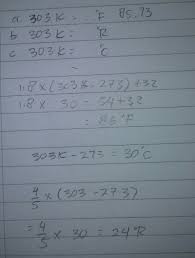 a. 303 K = ... °F 85.73
b 303 K = °R
c 303 K = °C
1.8 × (303 K - 273) + 32
1.8 × 30 = 54 + 32
= 86 °F
303 K - 273 = 30 °C
4/5 × (303 - 273)
= 4/5 × 30 = 24 °R